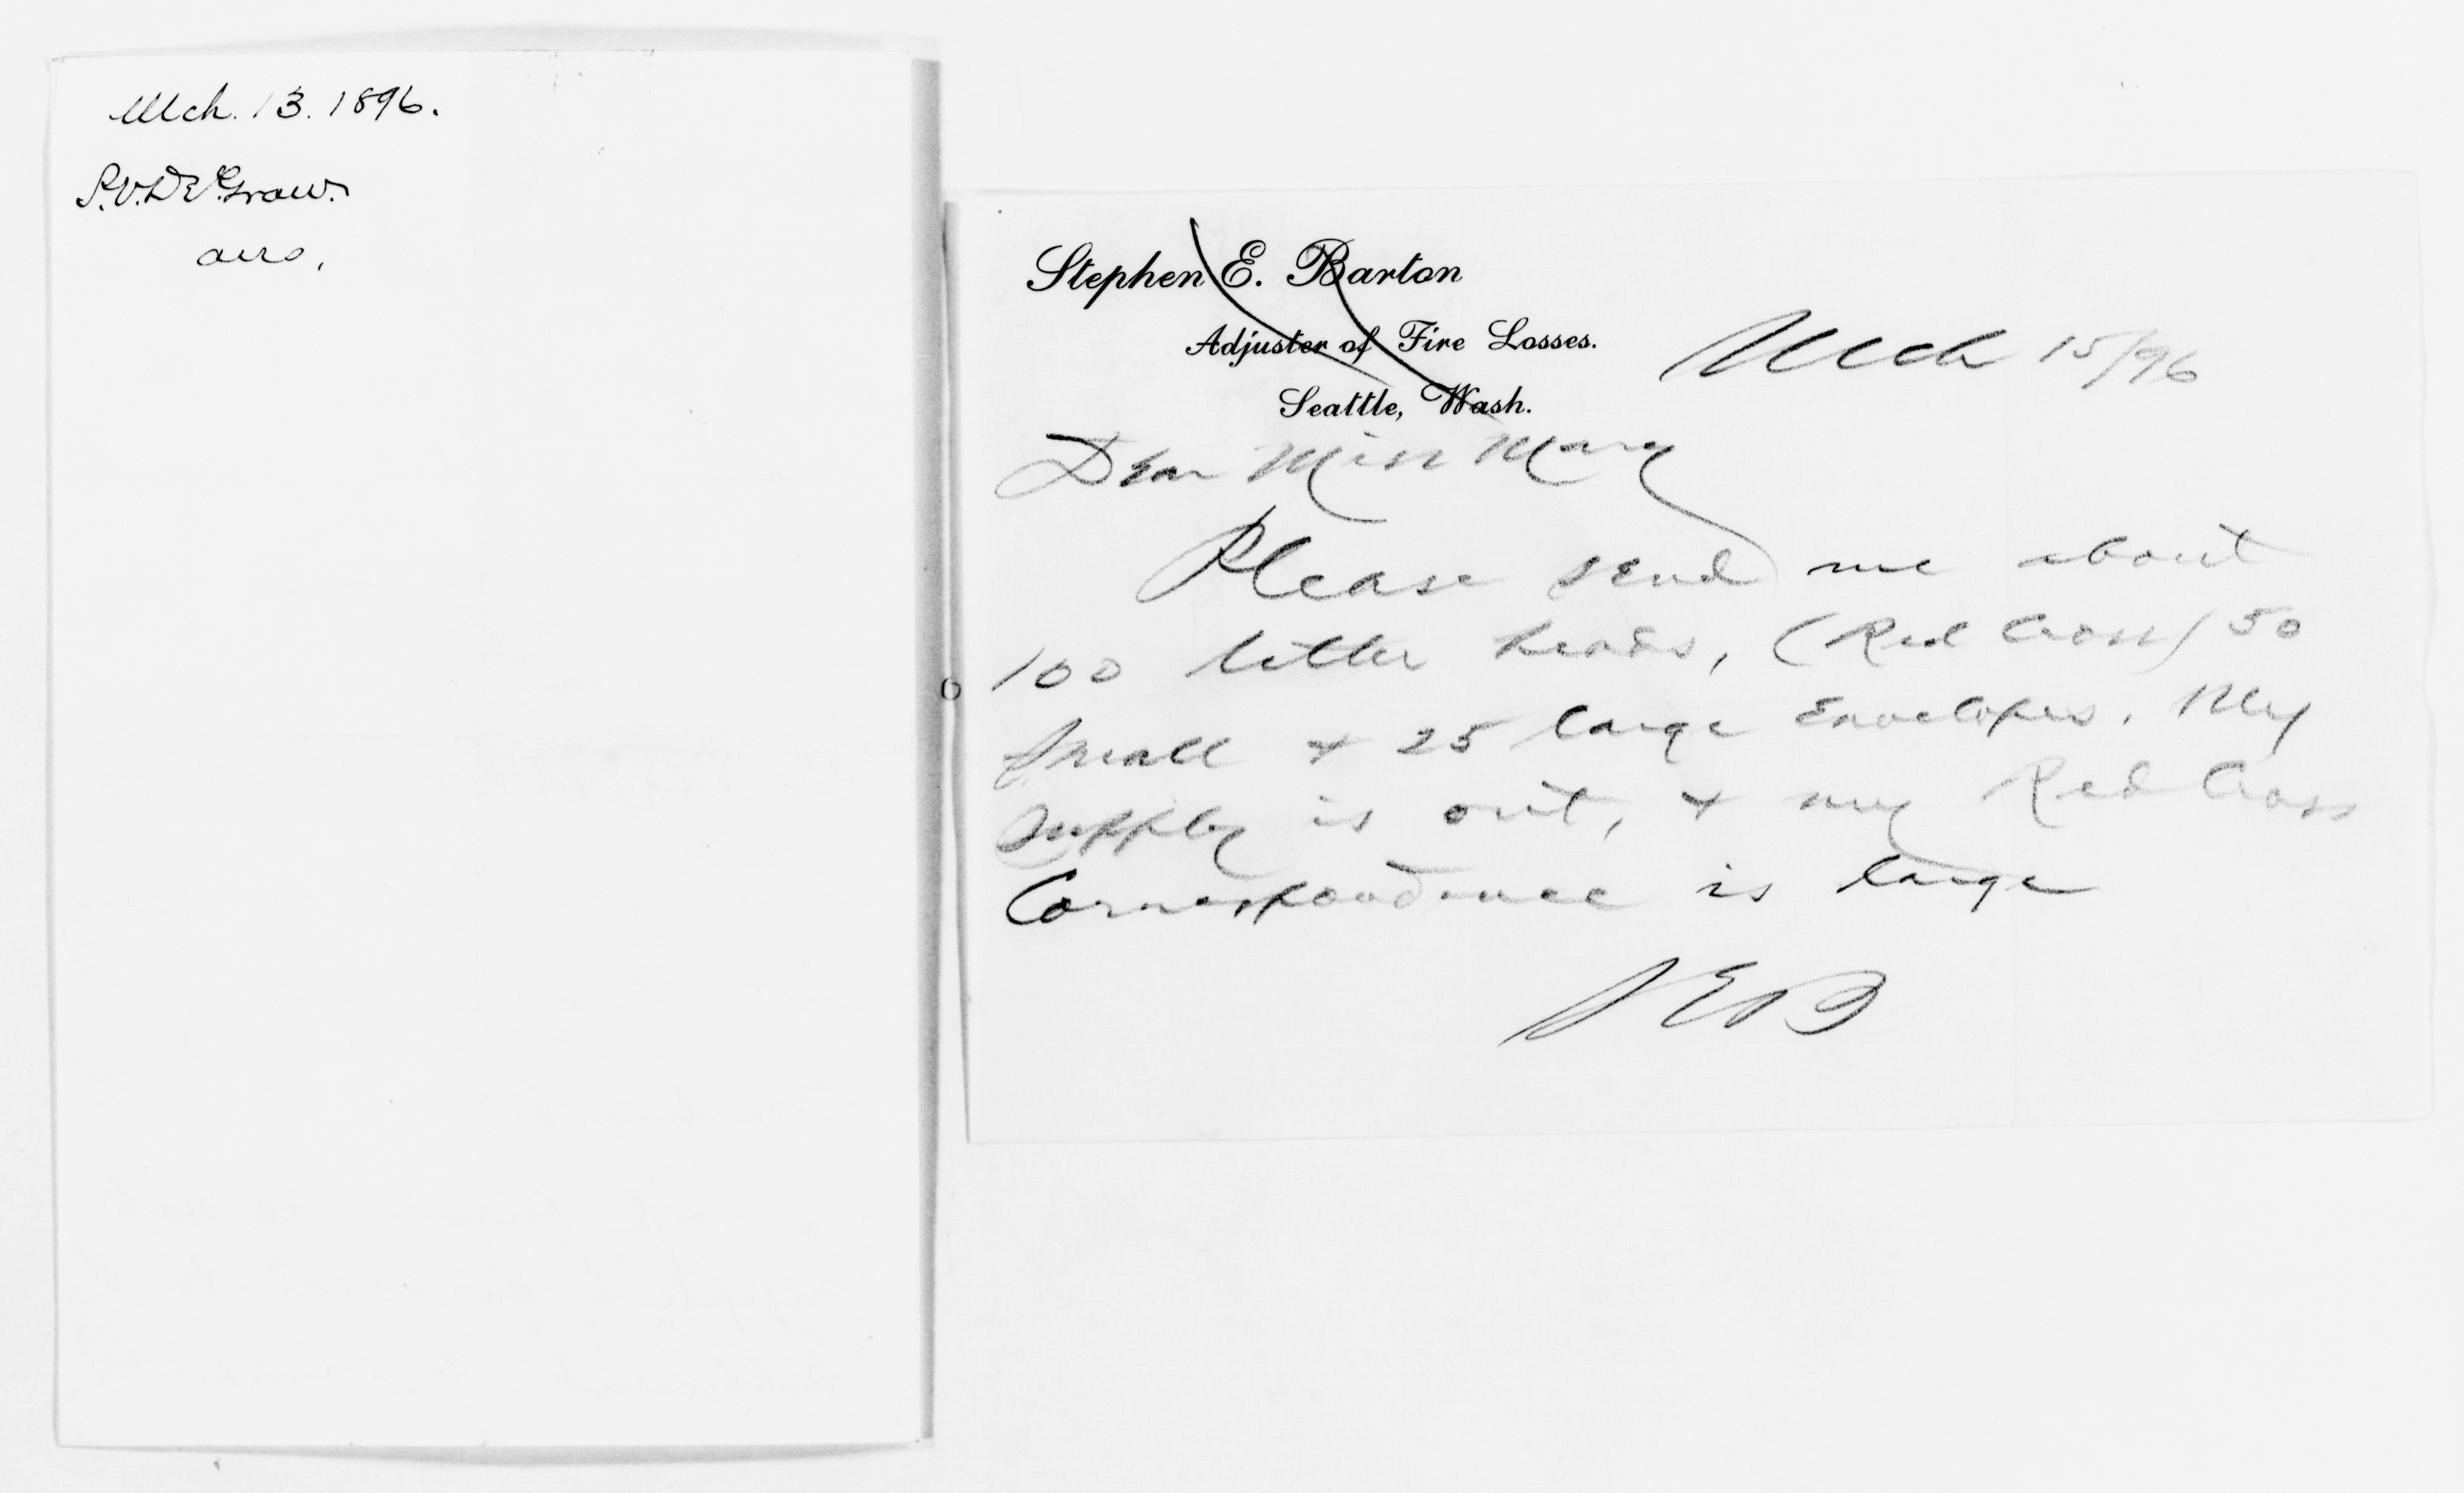 Mch. 13. 1896.
P.V. DeGraw.
ans,
Stephen E. Barton
Adjuster of Fire Losses.
Seattle, Wash.
Mch 15/96
Dear Miss Mary
Please send me about
100 letter heads, (Red Cross) 50
small + 25 large Envelopes. My
supply is out, + my Red Cross
Correspondence is large
SEB